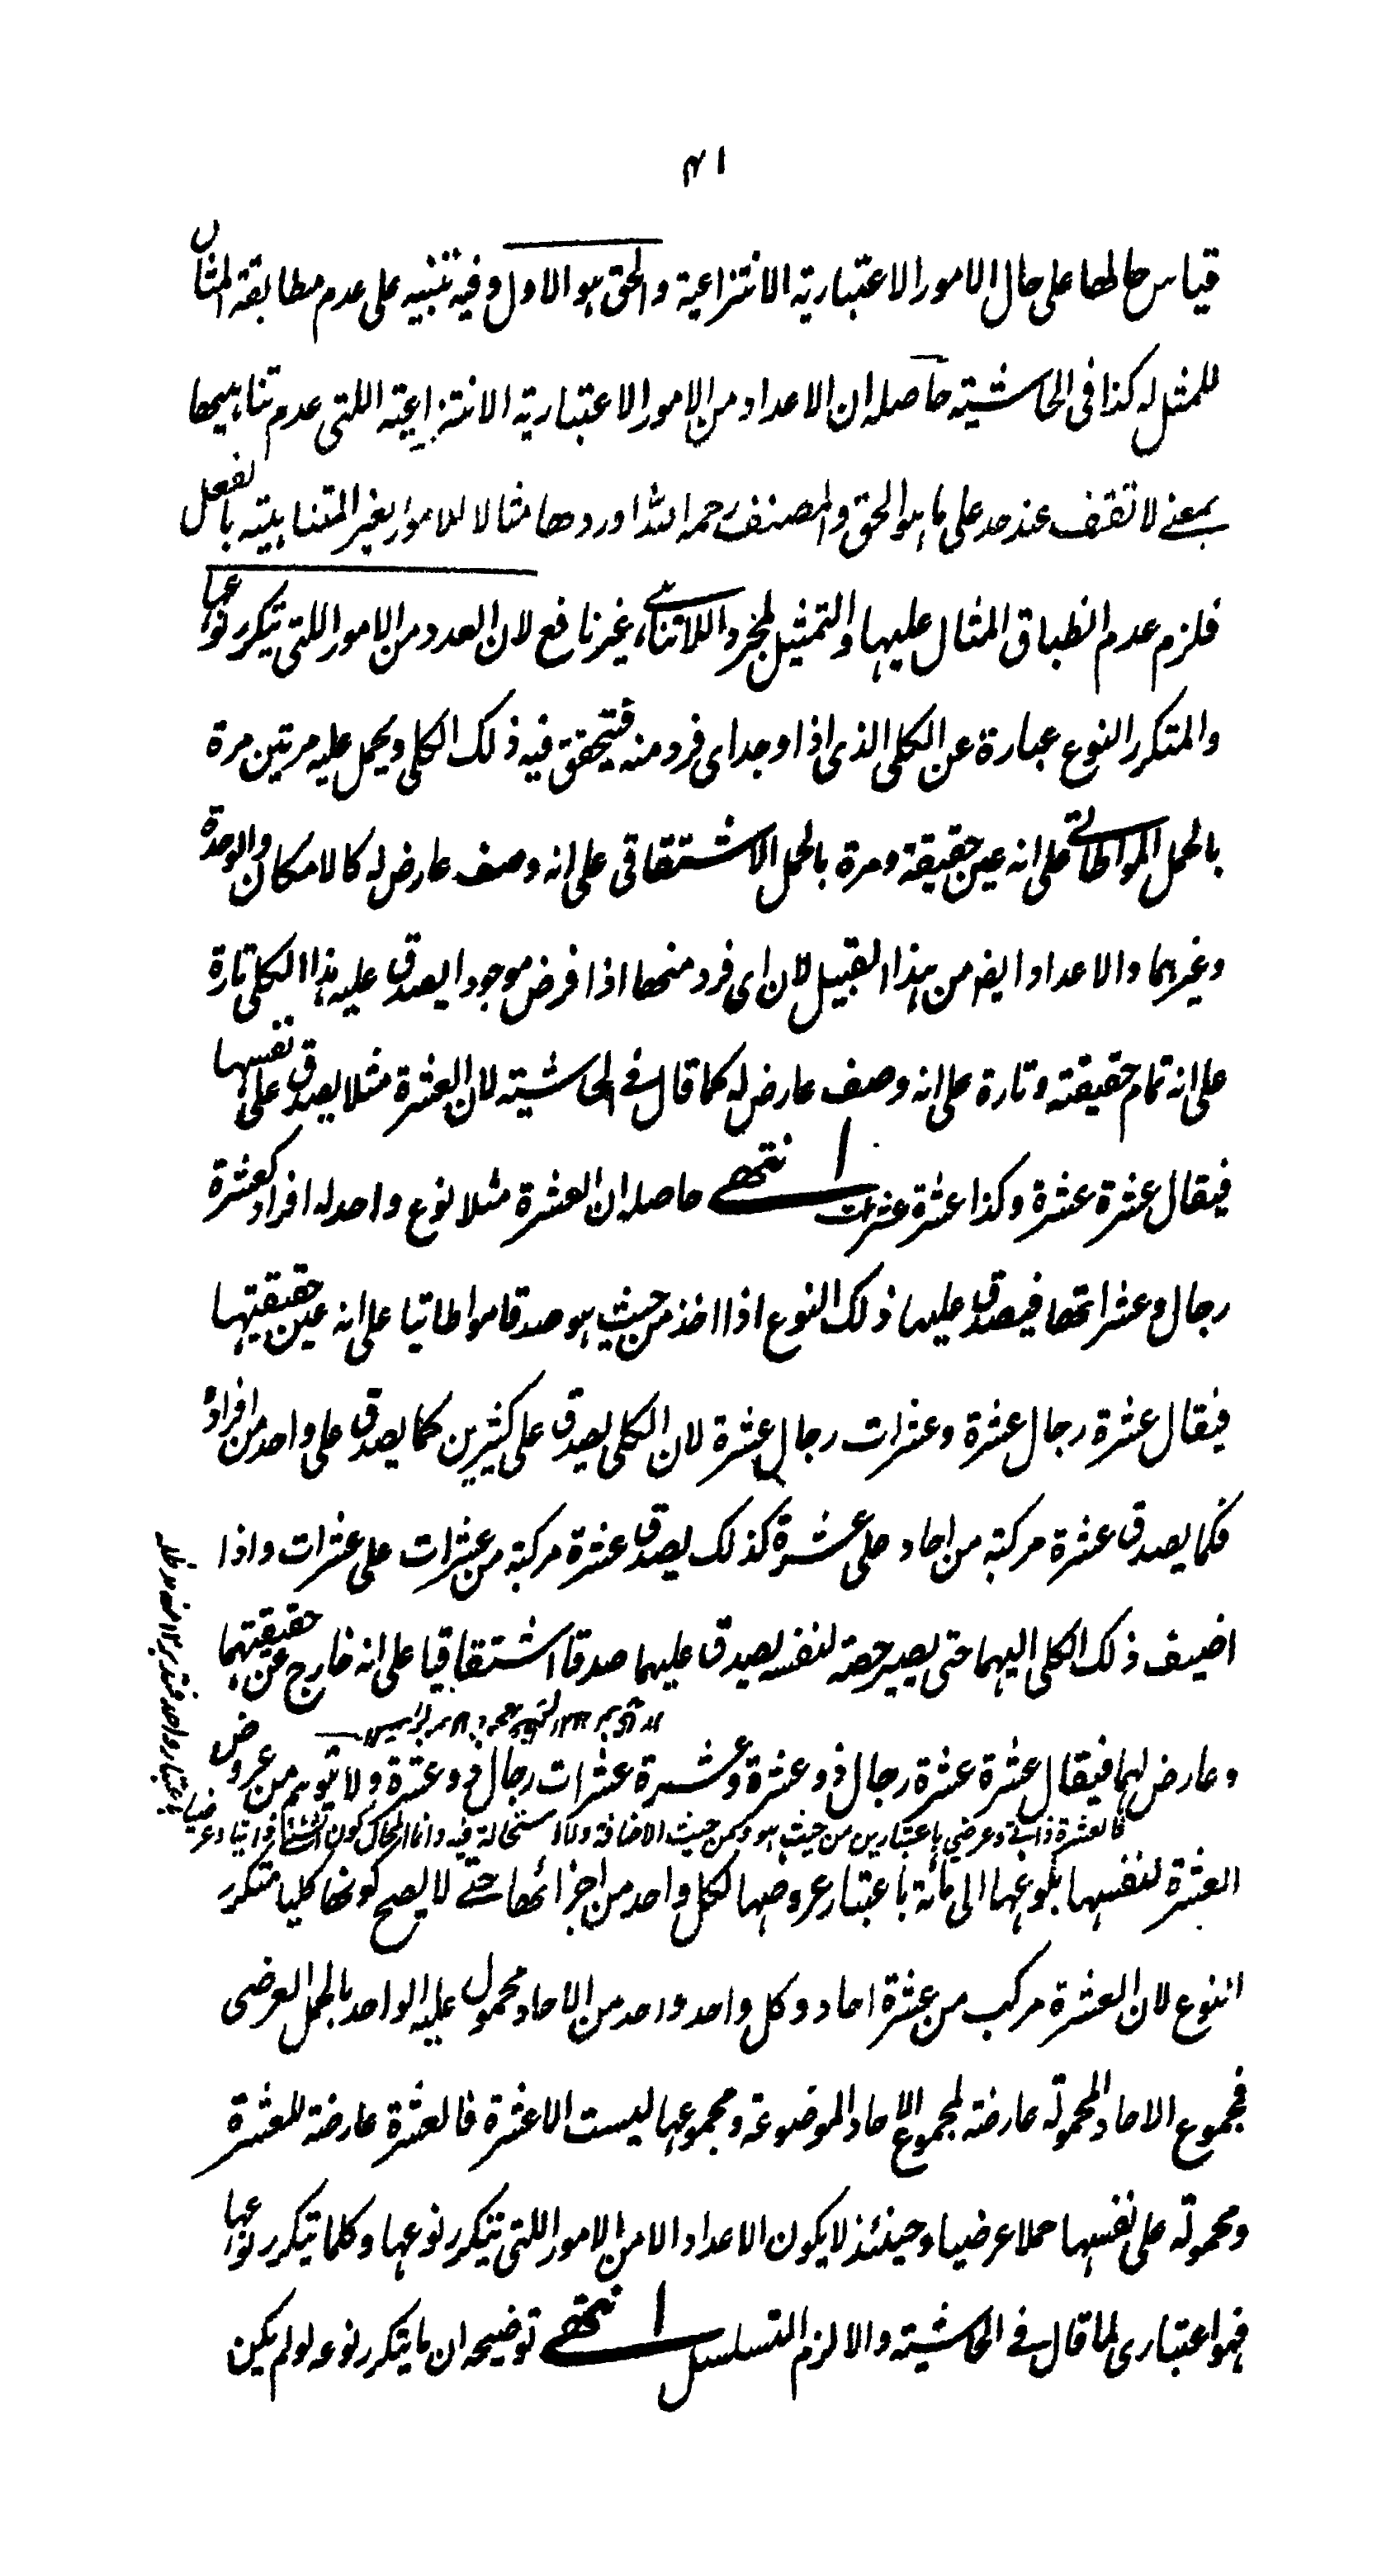 ٤١
قياس حالها على حال الامور الاعتبارية الانتزاعية والحق هو الاول وفيه تنبيه على عدم مطابقة المثال
للمثل له كذا فى الحاشية حاصله ان الاعداد من الامور الاعتبارية الانتزاعية اللتى عدم تناهيها
بمعنے لا تقف عند حد على ما هو الحق والمصنف رحمه الله اوردها مثالا للامور الغير المتناهية بالفعل
فلزم عدم انطباق المثال عليها والتمثيل لمجرد اللاتناهے غير نافع لان العدد من الامور اللتى يتكرر نوعها
والمتكرر النوع عبارة عن الكلى الذى اذا وجد اى فرد منه فيتحقق فيه ذلك الكلى ويحمل عليه مرتين مرة
بالحمل المواطاتے على انه عين حقيقة ومرة بالحمل الاشتقاقى على انه وصف عارض له كالامكان والوحدة
وغيرهما والاعداد ايضا من هذا القبيل لان اى فرد منها اذا فرض موجودا يصدق عليه هذا الكلى تارة
على انه تمام حقيقته وتارة على انه وصف عارض له كما قال فے الحاشية لان العشرة مثلا يصدق على نفسها
فيقال عشرة عشرة وكذا عشرة عشرات انتهے حاصله ان العشرة مثلا نوع واحد له افراد كعشرة
رجال وعشراتها فيصدق عليها ذلك النوع اذا اخذ من حيث هو صدقا مواطاتيا على انه عين حقيقتها
فيقال عشرة رجال عشرة وعشرات رجال عشرة لان الكلى يصدق على كثيرين كما يصدق على واحد من افراده
فكما يصدق عشرة مركبة من احاد على عشرة كذلك يصدق عشرة مركبة من عشرات على عشرات واذا
اضيف ذلك الكلى اليهما حتى يصير حصة لنفسه يصدق عليهما صدقا اشتقاقيا على انه خارج عن حقيقتهما
وعارض لهما فيقال عشرة عشرة رجال ذو عشرة وعشرة عشرات رجال ذو عشرة ولا يتوهم من عروض
فالعشرة ذاتے وعرضي باعتبارين من حيث هو ومن حيث الاضافة ولا استحالة فيه وانما المحال كون الشئ ذاتيا وعرضيا
العشرة لنفسها بلوغها الى مائة باعتبار عروضها لكل واحد من اجزائها حتے لا يصح كونها كليا متكرر
النوع لان العشرة مركب من عشرة احاد وكل واحد واحد من الاحاد محمول عليه الواحد بالحمل العرضى
فمجموع الاحاد المحمولة عارضة لمجموع الاحاد الموضوعة ومجموعها ليست الا عشرة فالعشرة عارضة للعشرة
ومحمولة على نفسها حملا عرضيا وحينئذ لا يكون الاعداد الا من الامور اللتى يتكرر نوعها وكلما يتكرر نوعها
فهو اعتبارى لما قال فے الحاشية والا لزم التسلسل انتهے توضيحه ان ما يتكرر نوعه لو لم يكن